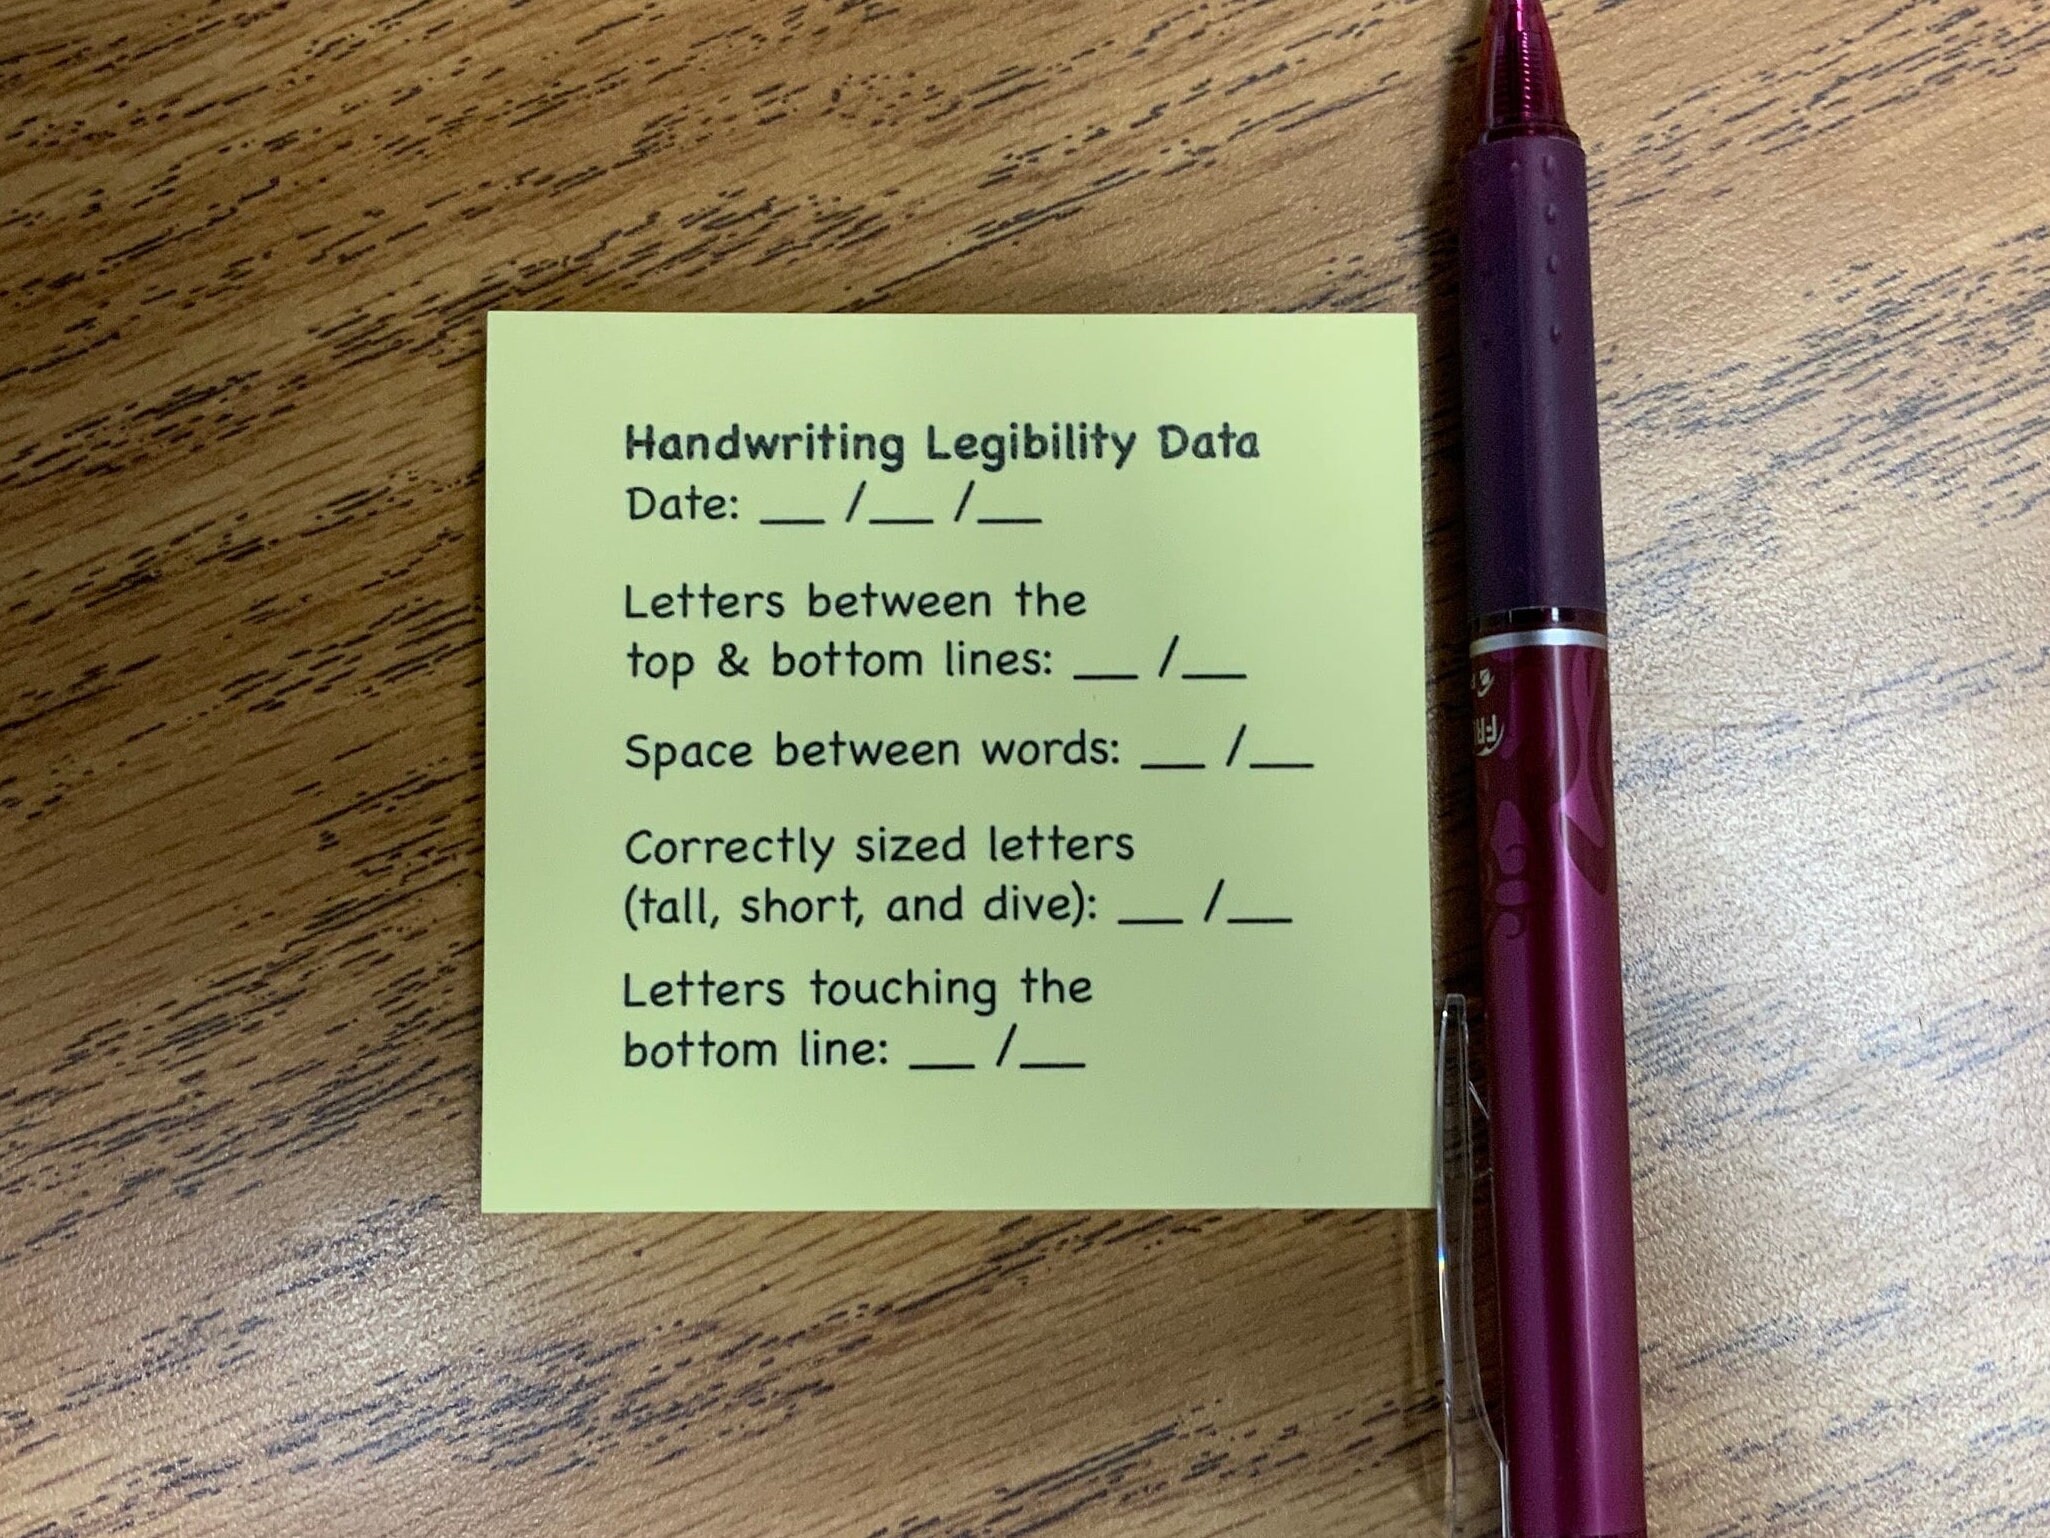 Handwriting Legibility Data
Date: __ /__ /__
Letters between the
top & bottom lines: __ /__
Space between words: __ /__
Correctly sized letters
(tall, short, and dive): __ /__
Letters touching the
bottom line: __ /__